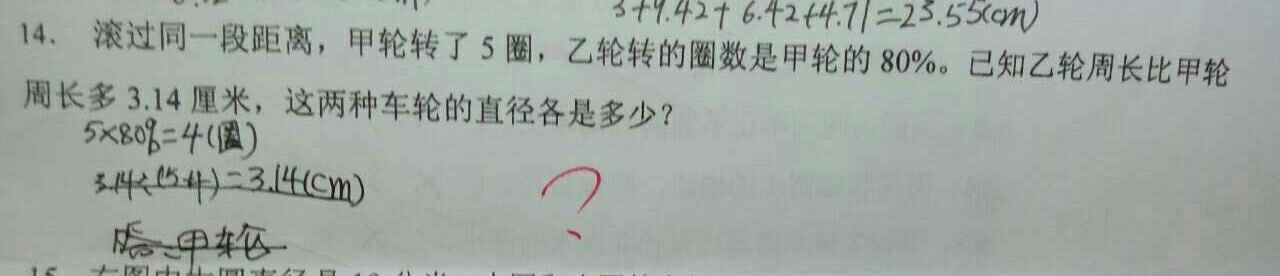 3+9.42+6.42+4.71=23.55(cm)
14. 滚过同一段距离，甲轮转了 5 圈，乙轮转的圈数是甲轮的 80%。已知乙轮周长比甲轮
周长多 3.14 厘米，这两种车轮的直径各是多少？
5×80%=4(圈)
3.14÷(5-4)=3.14(cm)
?
答:甲车轮